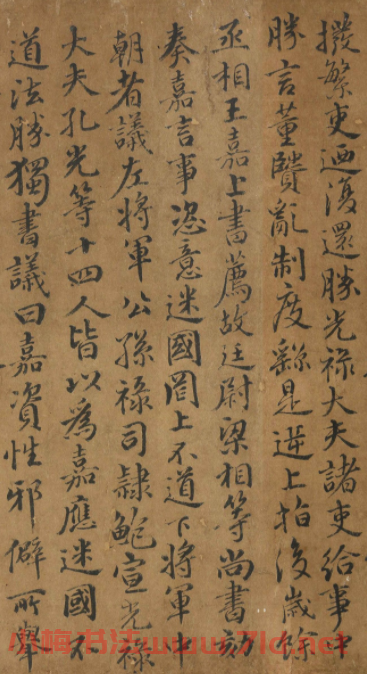 撥繁吏迺復還勝光祿大夫諸吏給事中
勝言董賢亂制度繇是逆上指後歲餘
丞相王嘉上書薦故廷尉梁相等尚書劾
奏嘉言事恣意迷國罔上不道下將軍中
朝者議左將軍公孫祿司隸鮑宣光祿
大夫孔光等十四人皆以為嘉應迷國不
道法勝獨書議曰嘉資性邪僻所舉
小梅书法www.7lc.net